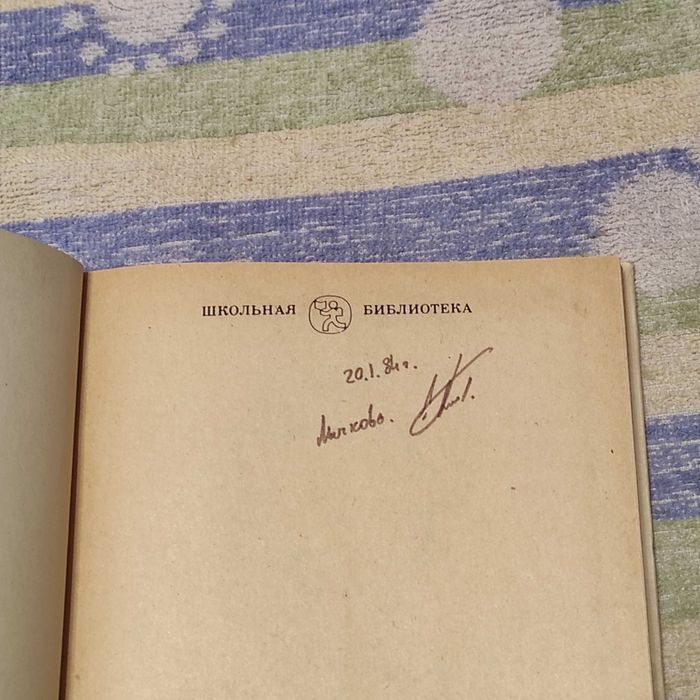 ШКОЛЬНАЯ БИБЛИОТЕКА
20.1.84г.
Лычково.